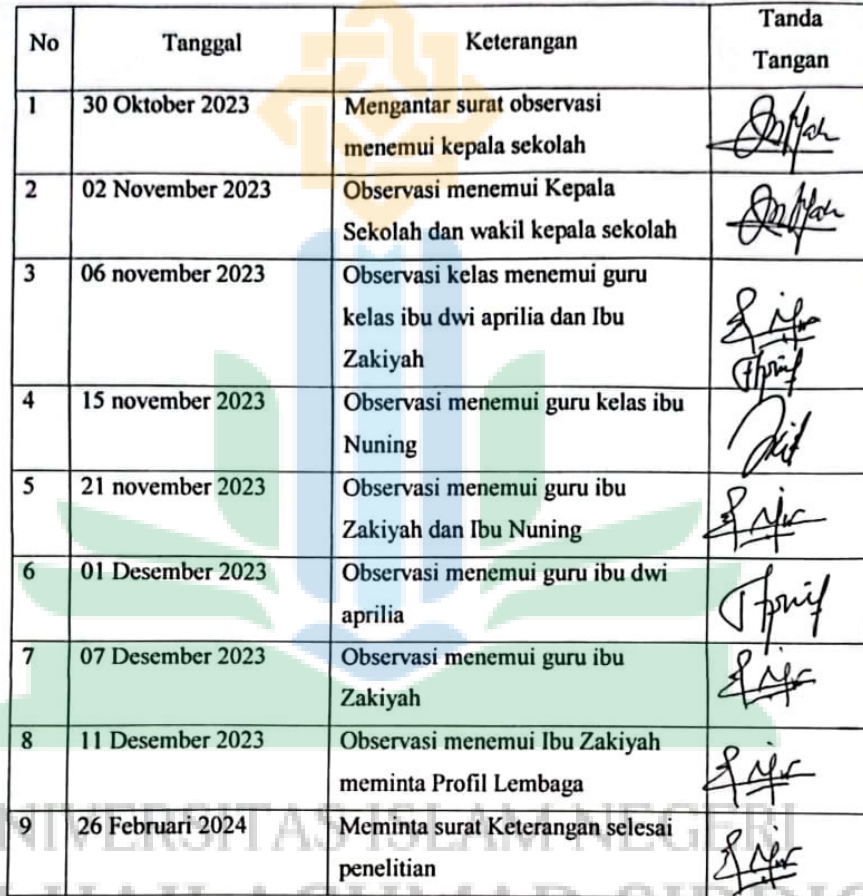 No Tanggal Keterangan Tanda
Tangan
1 30 Oktober 2023 Mengantar surat observasi
menemui kepala sekolah
2 02 November 2023 Observasi menemui Kepala
Sekolah dan wakil kepala sekolah
3 06 november 2023 Observasi kelas menemui guru
kelas ibu dwi aprilia dan Ibu
Zakiyah
4 15 november 2023 Observasi menemui guru kelas ibu
Nuning
5 21 november 2023 Observasi menemui guru ibu
Zakiyah dan Ibu Nuning
6 01 Desember 2023 Observasi menemui guru ibu dwi
aprilia
7 07 Desember 2023 Observasi menemui guru ibu
Zakiyah
8 11 Desember 2023 Observasi menemui Ibu Zakiyah
meminta Profil Lembaga
UNIVERSITAS ISLAM NEGERI
9 26 Februari 2024 Meminta surat Keterangan selesai
penelitian